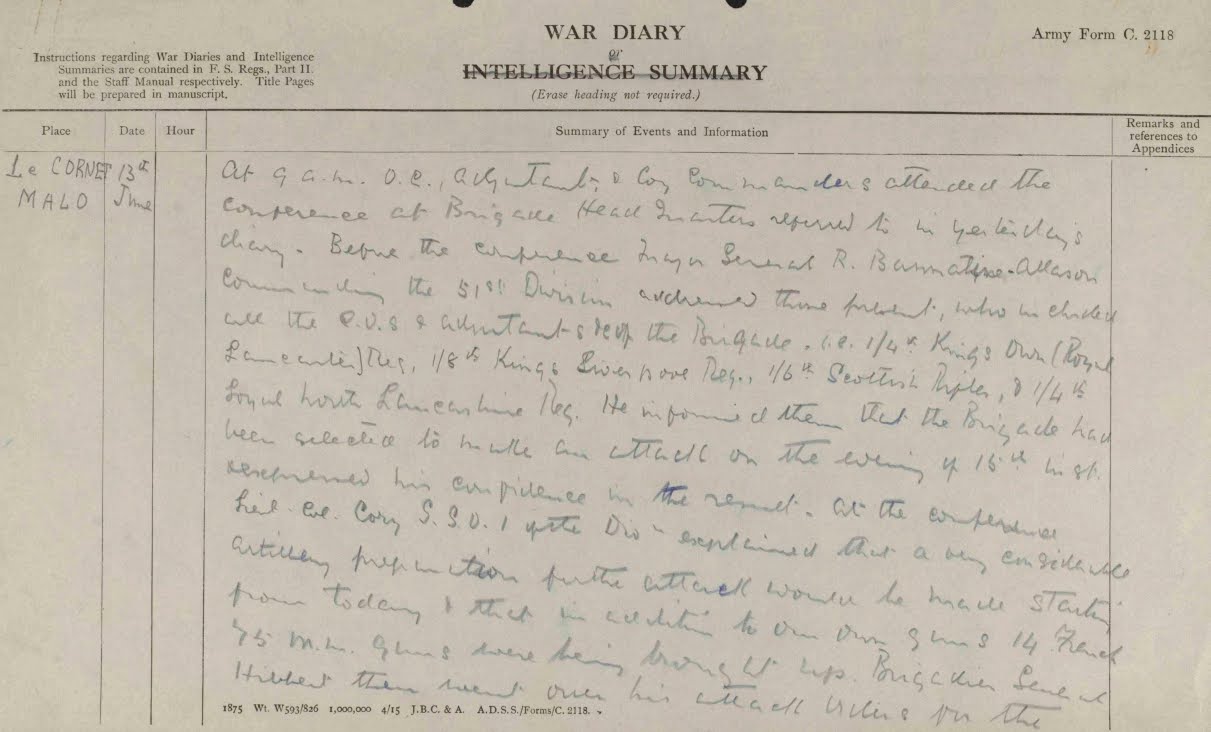 WAR DIARY
or
INTELLIGENCE SUMMARY
(Erase heading not required.)
Army Form C. 2118
Instructions regarding War Diaries and Intelligence
Summaries are contained in F. S. Regs., Part II.
and the Staff Manual respectively. Title Pages
will be prepared in manuscript.
Place Date Hour Summary of Events and Information Remarks and
references to
Appendices
Le CORNET 13th
MALO June
At 9 a.m. O.C., Adjutant, & Coy Commanders attended the
conference at Brigade Head Quarters referred to in yesterday's
diary. Before the conference Major General R. Bannatine-Allason
Commanding the 51st Division addressed those present, who included
all the C.O.s & adjutants of the Brigade, i.e. 1/4th Kings Own (Royal
Lancaster) Reg, 1/8th Kings Liverpool Reg., 1/6th Scottish Rifles, & 1/4th
Loyal North Lancashire Reg. He informed them that the Brigade had
been selected to make an attack on the evening of 15th inst.
expressed his confidence in the result. At the conference
Lieut. Col. Cory G.S.O. 1 of the Divn explained that a very considerable
artillery preparation for the attack would be made starting
from today & that in addition to our own guns 14 French
75 m.m. guns were being brought up. Brigadier General
Hibbert then went over his attack orders for the
1875 Wt. W593/826 1,000,000 4/15 J.B.C. & A. A.D.S.S./Forms/C. 2118.